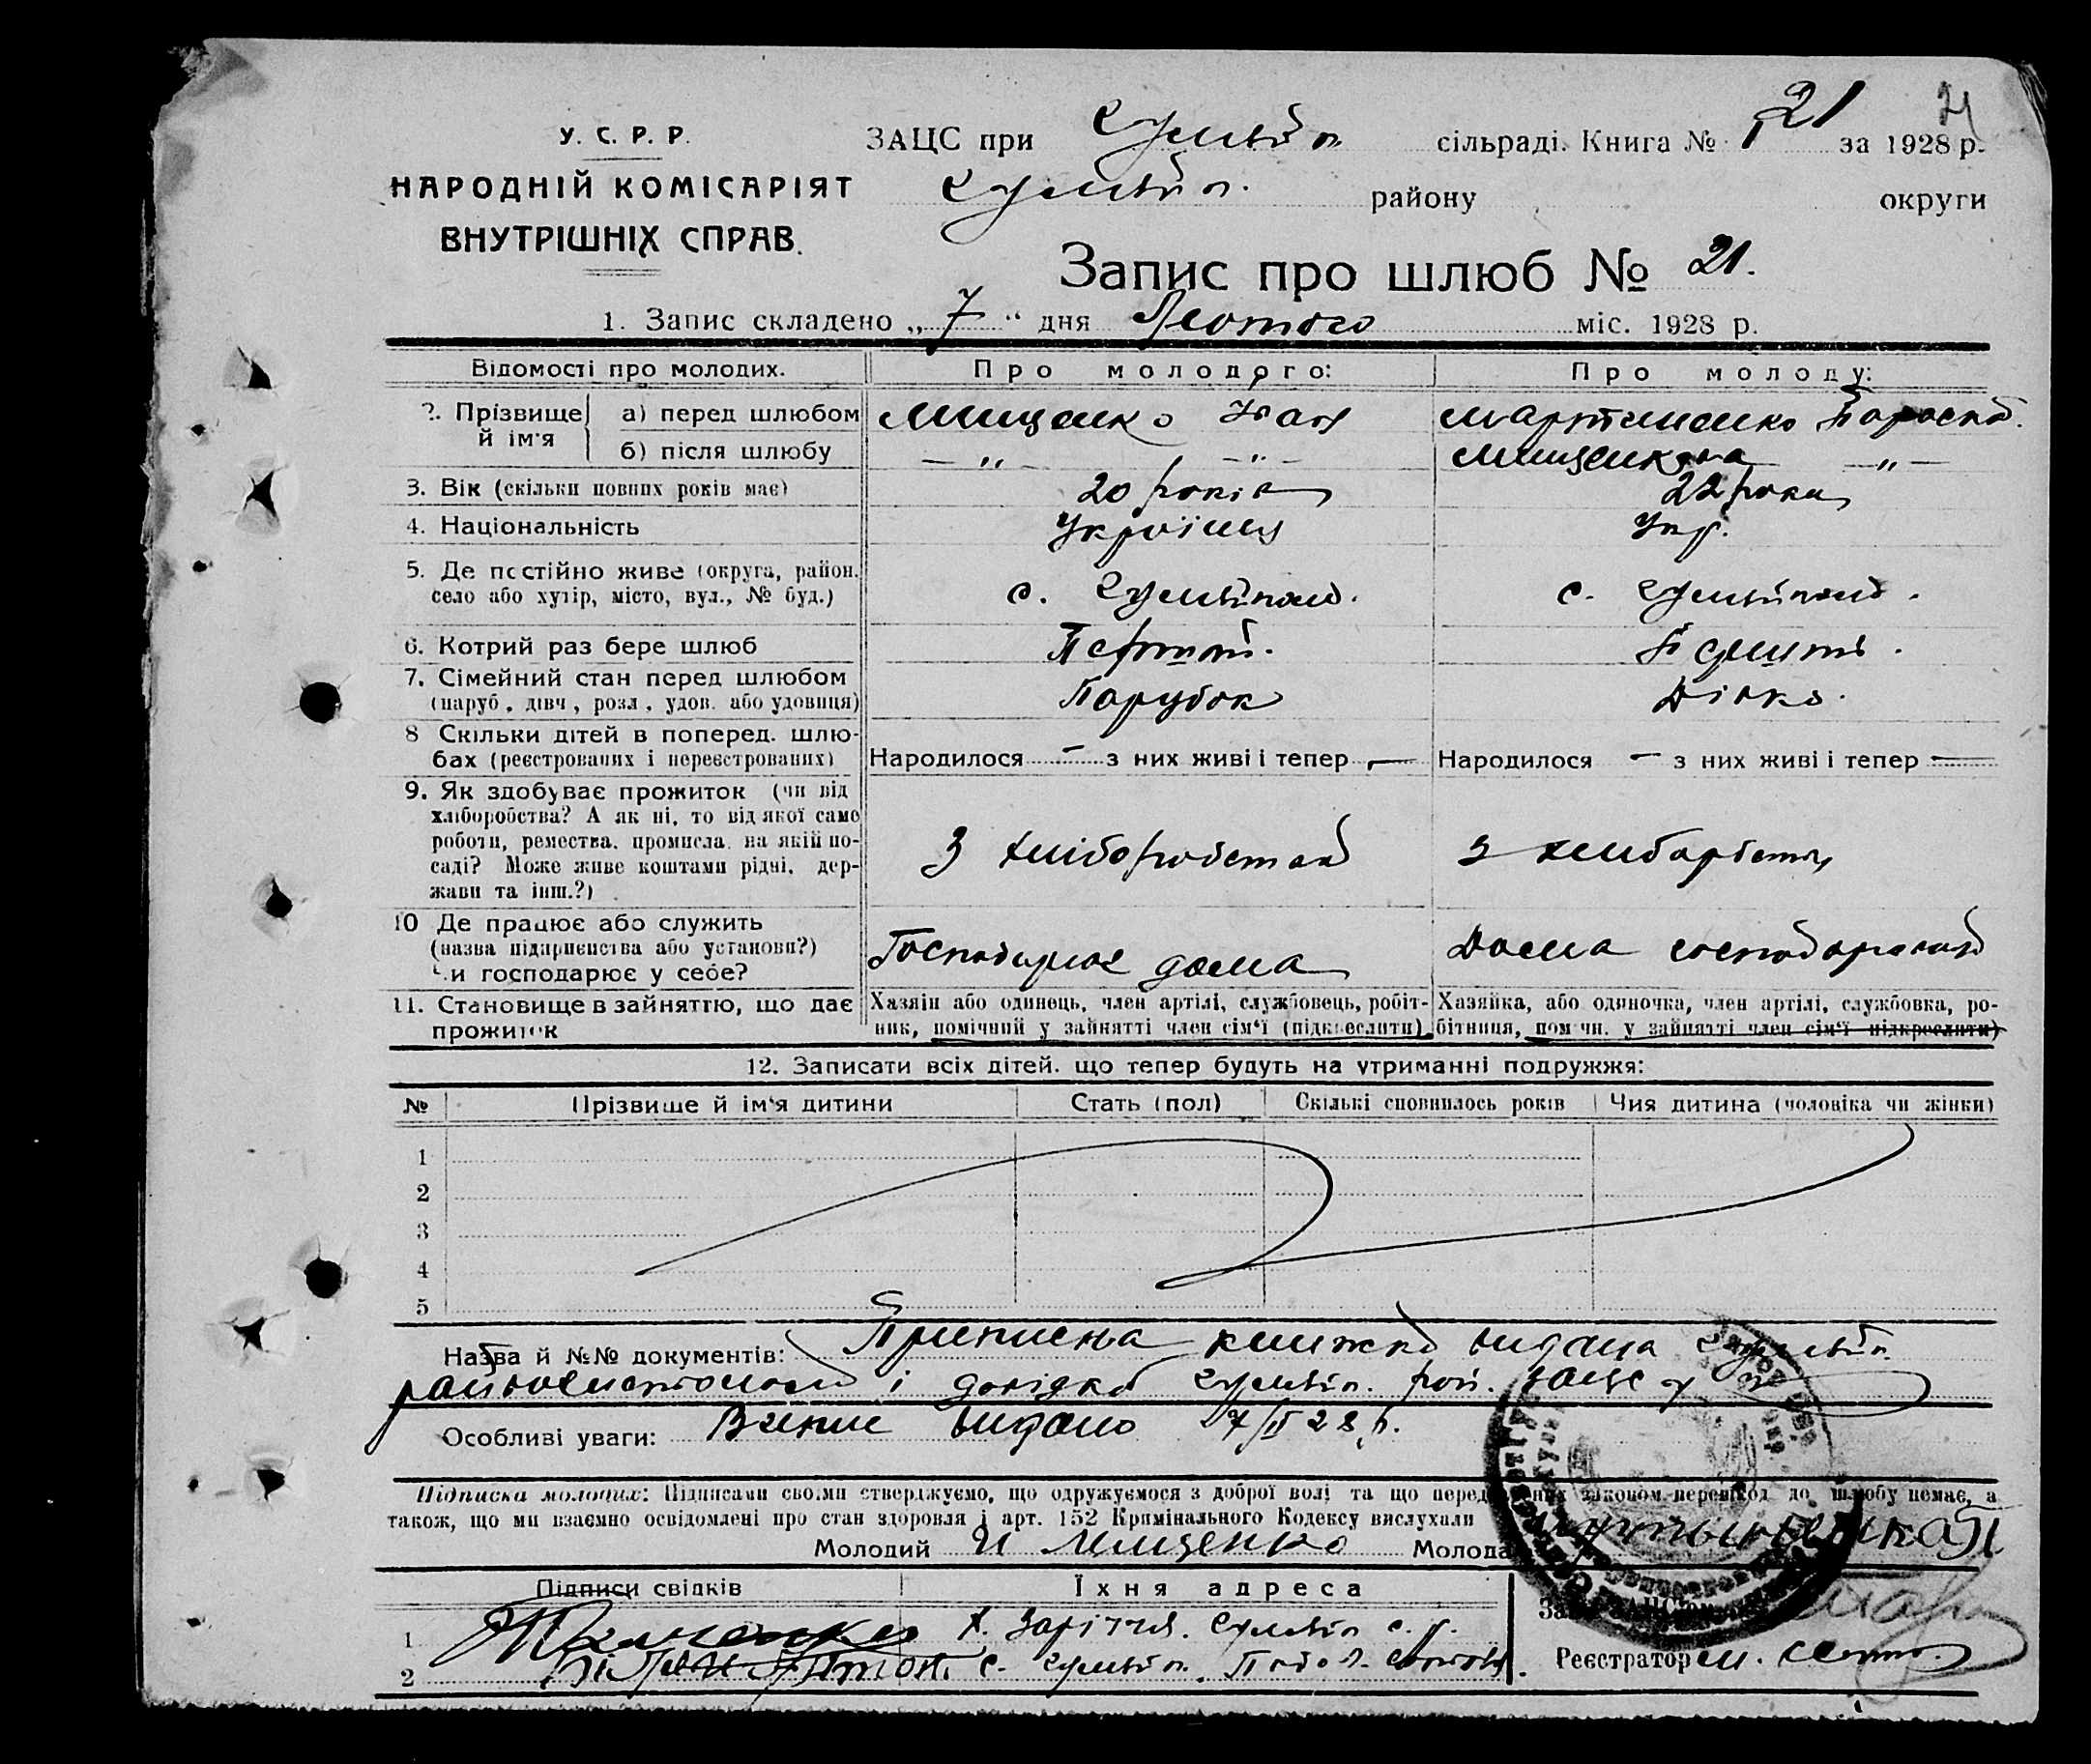 У. С. Р. Р.
НАРОДНІЙ КОМІСАРІЯТ
ВНУТРІШНІХ СПРАВ.
ЗАЦС при Гуляйп сільраді. Книга № 1 за 1928 р.
21
21
Гуляйп. району округи
Запис про шлюб № 21.
1. Запис складено „ 7 “ дня Лютого міс. 1928 р.
Відомості про молодих. Про молодого: Про молоду:
2. Прізвище й ім'я
а) перед шлюбом Мищенко Іван Мартиненко Параска.
б) після шлюбу — „ — „ — Мищенкова — „ —
3. Вік (скільки повних років має) 20 років 22 роки
4. Національність Українец Укр.
5. Де постійно живе (округа, район, село або хутір, місто, вул., № буд.) с. Гуляйполе. с. Гуляйполе.
6. Котрий раз бере шлюб Перший.
7. Сімейний стан перед шлюбом
(паруб., дівч., розл., удов. або удовиця) Парубок Дівка.
8 Скільки дітей в поперед. шлю-
бах (реєстрованих і нереєстрованих) Народилося — з них живі і тепер — Народилося — з них живі і тепер —
9. Як здобуває прожиток (чи від
хліборобства? А як ні, то від якої само
роботи, ремества, промисла, на якій по-
саді? Може живе коштами рідні, дер-
жави та інш.?)
З хліборобства з
10 Де працює або служить
(назва підприємства або установи?)
Чи господарює у себе?
Господарює дома Дома
11. Становище в зайняттю, що дає
прожиток
Хазяін або одинець, член артілі, службовець, робіт-
ник, помічний у зайнятті член сім'ї (підкреслити)
Хазяйка, або одиночка, член артілі, службовка, ро-
бітниця, помічн. у зайнятті член сім'ї підкреслити)
12. Записати всіх дітей, що тепер будуть на утриманні подружжя:
№ Прізвище й ім'я дитини Стать (пол) Скількі сповнилось років Чия дитина (чоловіка чи жінки)
1
2
3
4
5
Назва й №№ документів: Приписна книжка видана Гуляйп.
і довідка Гуляйп. рай.
Особливі уваги: Витяг видано 7/II 28 р.
Підписка молодих: Підписами своіми стверджуємо, що одружуємося з доброї волі та що перед законом перешкод до шлюбу немає, а
також, що ми взаємно освідомлені про стан здоровля і арт. 152 Кримінального Кодексу вислухали
Молодий И Мищенко Молода
Підписи свідків Їхня адреса
1 х. Заріччя. Гуляйп с. р.
2 с. Гуляйп.
Реєстратор